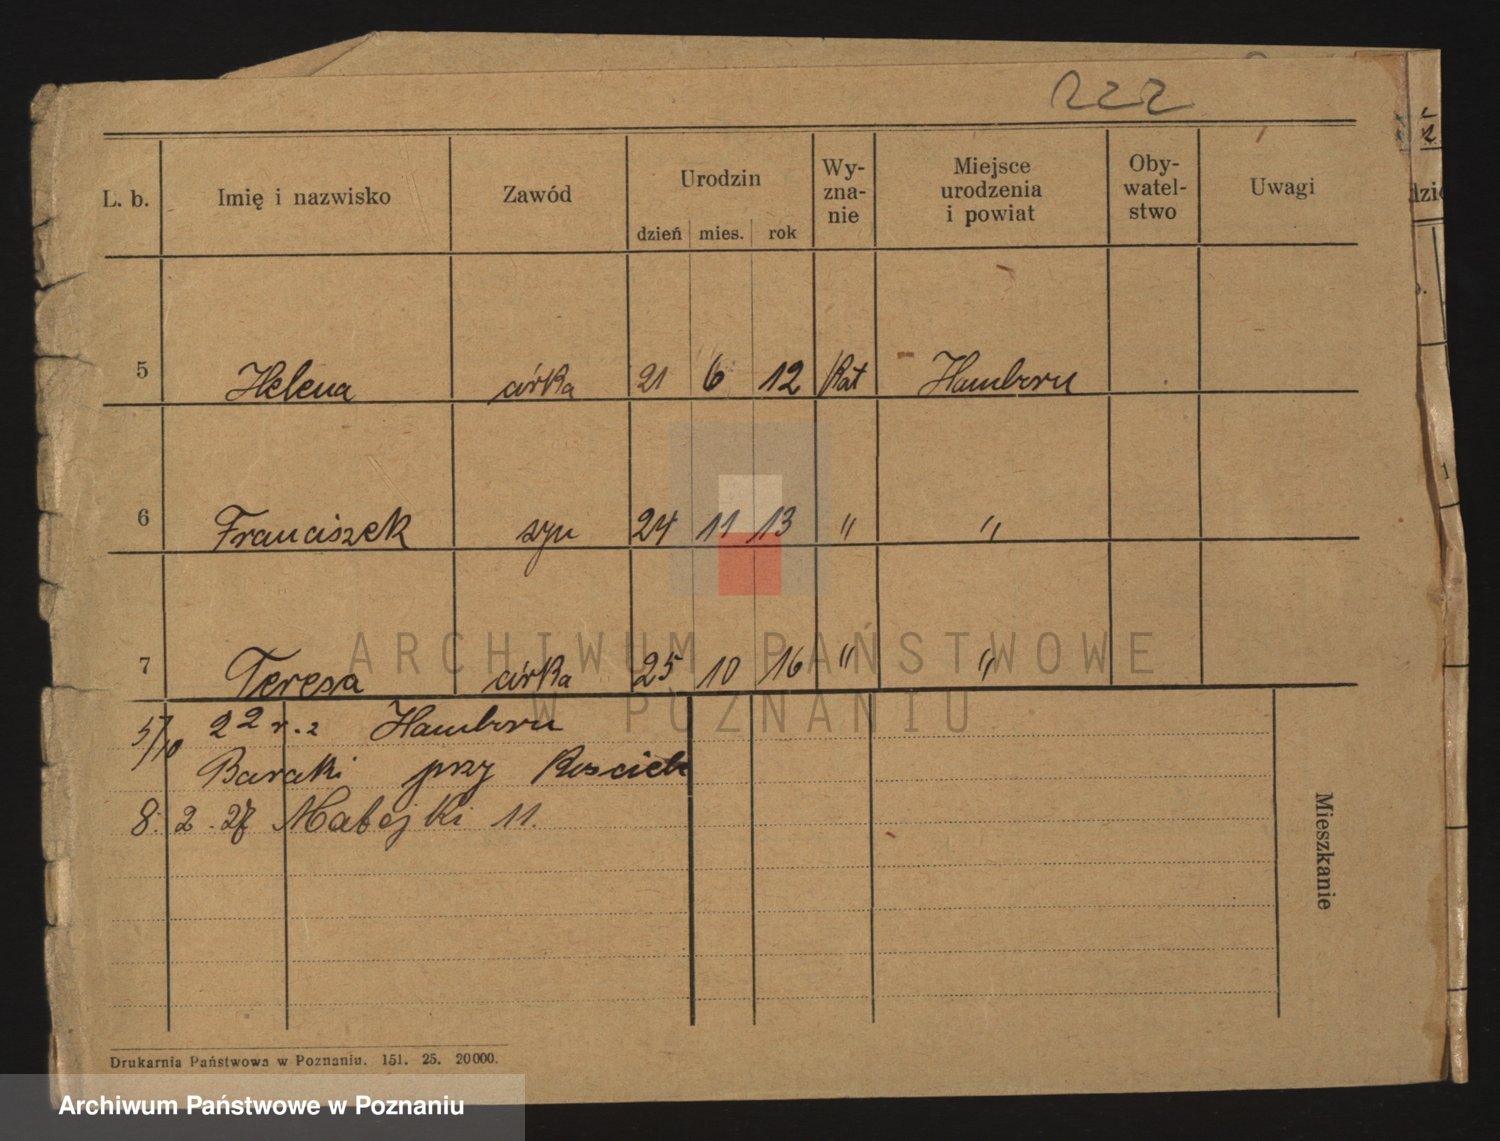 222
L. b. Imię i nazwisko Zawód Urodzin dzień mies. rok Wy-zna-nie Miejsce urodzenia i powiat Oby-watel-stwo Uwagi
5 Helena córka 21 6 12 Kat Hamborn
6 Franciszek syn 24 11 13 " "
7 Teresa córka 25 10 16 " "
5/10 22 r. z Hamborn
Baraki przy
8. 2. 27 Matejki 11.
Mieszkanie
Drukarnia Państwowa w Poznaniu. 151. 25. 20000.
ARCHIWUM PAŃSTWOWE
W POZNANIU
Archiwum Państwowe w Poznaniu